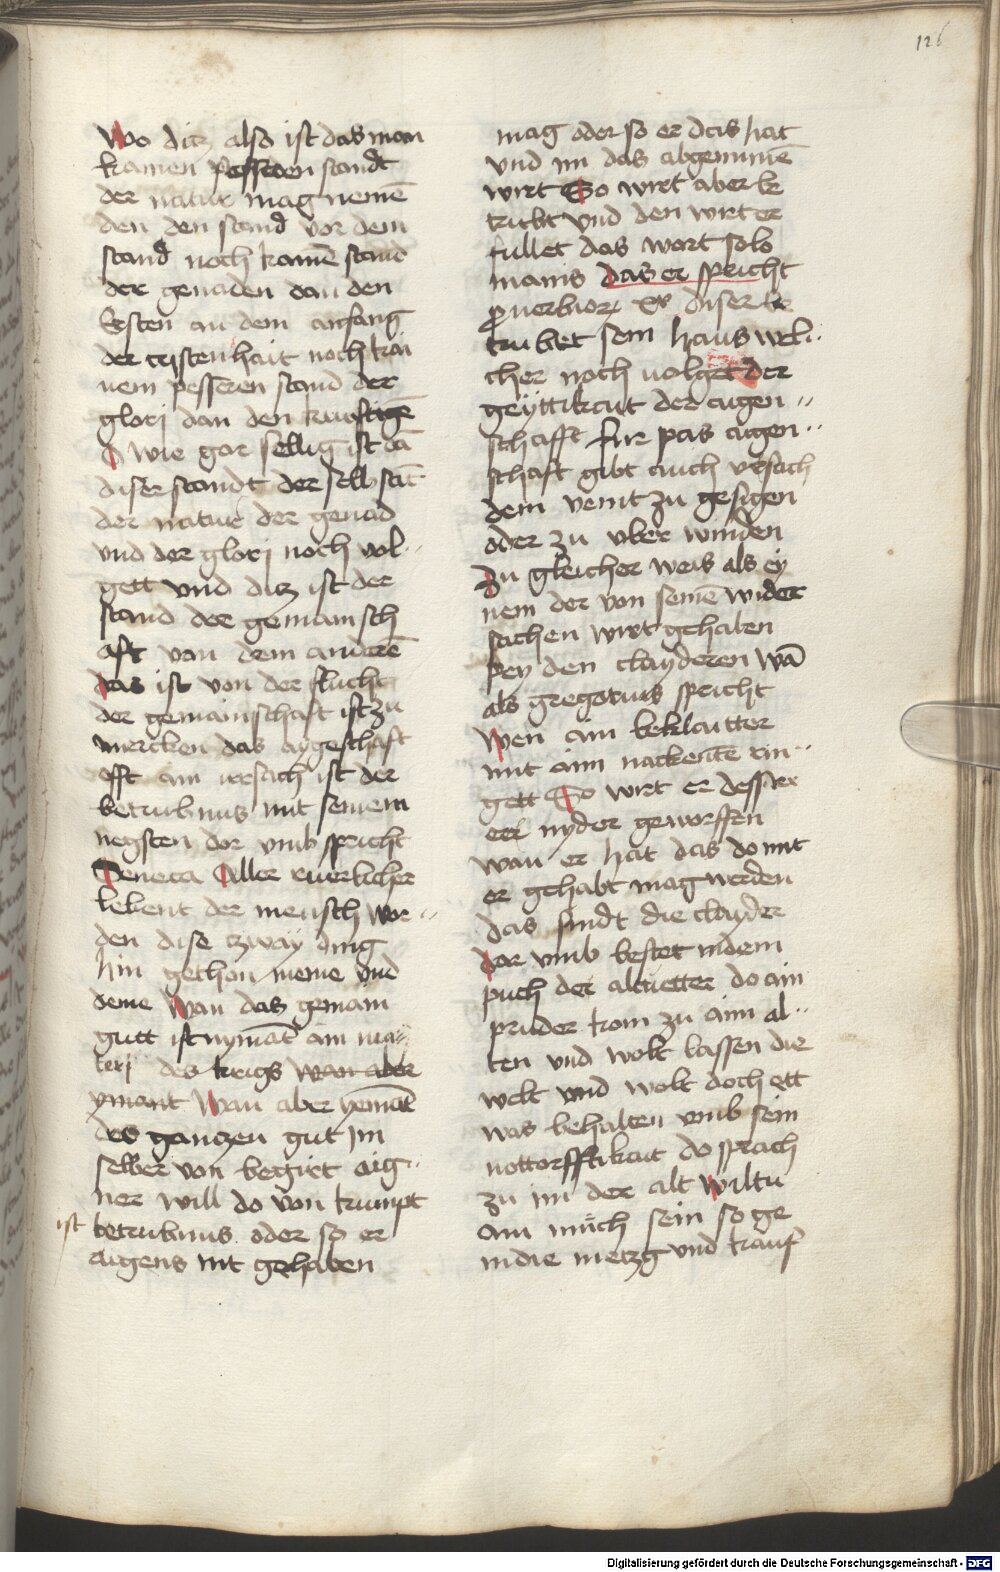 126
Wo ditz also ist das man
kainen pesseren standt
der natur mag nemē
den den stand vor dem
stand noch kainē stand
der genaden dan den
ersten an dem anfang
der cristenhait noch kai
nem pesseren stand der
glori dan den kunftigē
O wie gar sellig ist dā
diser standt der sell stāt
der natur der genad
vnd der glorj noch vol¬
gett vnd ditz ist der
stand der gemainsch
aft von dem anderē
das ist von der flucht
der gemainschaft ist zu
mercken das aygeschaft
offt ain vrsach ist der
betrubnus mit seinem
negsten dor vmb spricht
Seneca Aller ruerlicher
lebent der mensch wor¬
den dise tzway ding
hin gethon meine vnd
deine Wan das gemain
gutt ist nymāt ain ma¬
terj des krigs wan aber
ymant Wan aber yemāt
des gantzen gut jm
selber von begirt aig¬
ner will do von kumpt
ist betrubnus oder so er
aigens nit gehaben
mag oder so er das hat
vnd im das abgenumē
wirt So wirt aber be
trubt vnd den wirt er
fullet das wort salo
monis das er spricht
puerbior xv diser be
trubet sein haus wel¬
cher noch volget der
geyttikait der aigen¬
schafft fur pas aigen¬
schaft gibt auch vrsach
dem veint zu gesigen
oder zu vber winden
Zu gleicher weis als ey
nem der von seinē wider
sachen wirt gehalten
pey den clayderen wā
als gregorius spricht
Wen ain beklaitter
mit aim nackentē rin¬
gett So wirt er desster
eer nyder geworffen
wan er hat das do mit
er gehabt mag werden
das sindt die clayder
dor vmb bestet in dem
puch der altuetter do ain
pruder kom zu aim al¬
ten vnd wolt lassen die
welt vnd wolt doch ett
was behalten vmb sein
nottorfftikait do sprach
zu im der alt wiltu
ain münch sein so ge
in die metzg vnd kauf
Digitalisierung gefördert durch die Deutsche Forschungsgemeinschaft - DFG